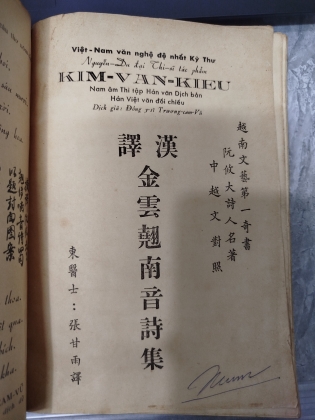 Việt-Nam văn nghệ đệ nhất Kỳ Thư
Nguyễn-Du đại Thi-sĩ tác phẩm
KIM-VÂN-KIỀU
Nam âm Thi tập Hán văn Dịch bản
Hán Việt văn đối chiếu
Dịch giả: Đông y-sĩ Trương-cam-Vũ
越南文藝第一奇書
阮攸大詩人名著
中越文對照
漢譯
金雲翹南音詩集
東醫士：張甘雨譯